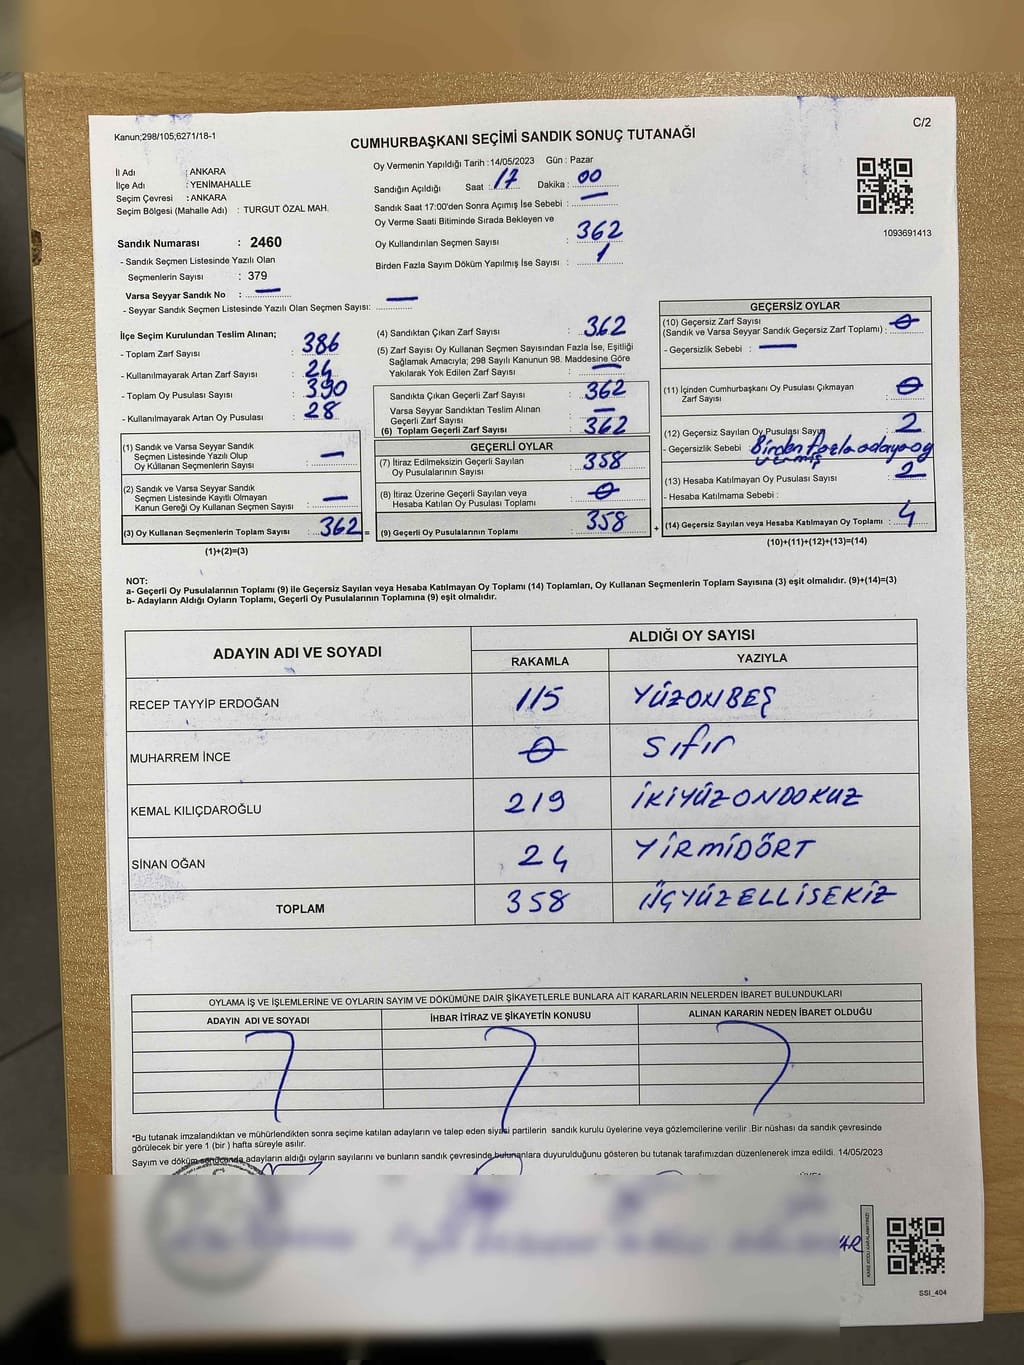 Kanun;298/105;6271/18-1
C/2
CUMHURBAŞKANI SEÇİMİ SANDIK SONUÇ TUTANAĞI
İl Adı : ANKARA
İlçe Adı : YENİMAHALLE
Seçim Çevresi : ANKARA
Seçim Bölgesi (Mahalle Adı) : TURGUT ÖZAL MAH.
Sandık Numarası : 2460
- Sandık Seçmen Listesinde Yazılı Olan
Seçmenlerin Sayısı : 379
Varsa Seyyar Sandık No : —
- Seyyar Sandık Seçmen Listesinde Yazılı Olan Seçmen Sayısı: —
Oy Vermenin Yapıldığı Tarih : 14/05/2023 Gün : Pazar
Sandığın Açıldığı Saat : 17 Dakika : 00
Sandık Saat 17:00'den Sonra Açımış İse Sebebi : —
Oy Verme Saati Bitiminde Sırada Bekleyen ve
Oy Kullandırılan Seçmen Sayısı : 362
Birden Fazla Sayım Döküm Yapılmış İse Sayısı : 1
1093691413
İlçe Seçim Kurulundan Teslim Alınan;
- Toplam Zarf Sayısı : 386
- Kullanılmayarak Artan Zarf Sayısı : 24
- Toplam Oy Pusulası Sayısı : 390
- Kullanılmayarak Artan Oy Pusulası : 28
(1) Sandık ve Varsa Seyyar Sandık
Seçmen Listesinde Yazılı Olup
Oy Kullanan Seçmenlerin Sayısı : —
(2) Sandık ve Varsa Seyyar Sandık
Seçmen Listesinde Kayıtlı Olmayan
Kanun Gereği Oy Kullanan Seçmen Sayısı : —
(3) Oy Kullanan Seçmenlerin Toplam Sayısı : 362 =
(1)+(2)=(3)
(4) Sandıktan Çıkan Zarf Sayısı : 362
(5) Zarf Sayısı Oy Kullanan Seçmen Sayısından Fazla İse, Eşitliği
Sağlamak Amacıyla; 298 Sayılı Kanunun 98. Maddesine Göre
Yakılarak Yok Edilen Zarf Sayısı : —
Sandıkta Çıkan Geçerli Zarf Sayısı : 362
Varsa Seyyar Sandıktan Teslim Alınan
Geçerli Zarf Sayısı : —
(6) Toplam Geçerli Zarf Sayısı : 362
GEÇERLİ OYLAR
(7) İtiraz Edilmeksizin Geçerli Sayılan
Oy Pusulalarının Sayısı : 358
(8) İtiraz Üzerine Geçerli Sayılan veya
Hesaba Katılan Oy Pusulası Toplamı : 0
(9) Geçerli Oy Pusulalarının Toplamı : 358 +
GEÇERSİZ OYLAR
(10) Geçersiz Zarf Sayısı
(Sandık ve Varsa Seyyar Sandık Geçersiz Zarf Toplamı) : 0
- Geçersizlik Sebebi : —
(11) İçinden Cumhurbaşkanı Oy Pusulası Çıkmayan
Zarf Sayısı : 0
(12) Geçersiz Sayılan Oy Pusulası Sayısı : 2
- Geçersizlik Sebebi : Birden fazla adaya oy
vermiş
(13) Hesaba Katılmayan Oy Pusulası Sayısı : 2
- Hesaba Katılmama Sebebi :
(14) Geçersiz Sayılan veya Hesaba Katılmayan Oy Toplamı : 4
(10)+(11)+(12)+(13)=(14)
NOT:
a- Geçerli Oy Pusulalarının Toplamı (9) ile Geçersiz Sayılan veya Hesaba Katılmayan Oy Toplamı (14) Toplamları, Oy Kullanan Seçmenlerin Toplam Sayısına (3) eşit olmalıdır. (9)+(14)=(3)
b- Adayların Aldığı Oyların Toplamı, Geçerli Oy Pusulalarının Toplamına (9) eşit olmalıdır.
ADAYIN ADI VE SOYADI
ALDIĞI OY SAYISI
RAKAMLA YAZIYLA
RECEP TAYYİP ERDOĞAN 115 YÜZONBEŞ
MUHARREM İNCE 0 Sıfır
KEMAL KILIÇDAROĞLU 219 İKİYÜZONDOKUZ
SİNAN OĞAN 24 YİRMİDÖRT
TOPLAM 358 ÜÇYÜZELLİSEKİZ
OYLAMA İŞ VE İŞLEMLERİNE VE OYLARIN SAYIM VE DÖKÜMÜNE DAİR ŞİKAYETLERLE BUNLARA AİT KARARLARIN NELERDEN İBARET BULUNDUKLARI
ADAYIN ADI VE SOYADI İHBAR İTİRAZ VE ŞİKAYETİN KONUSU ALINAN KARARIN NEDEN İBARET OLDUĞU
*Bu tutanak imzalandıktan ve mühürlendikten sonra seçime katılan adayların ve talep eden siyasi partilerin sandık kurulu üyelerine veya gözlemcilerine verilir .Bir nüshası da sandık çevresinde
görülecek bir yere 1 (bir ) hafta süreyle asılır.
Sayım ve döküm sonucunda adayların aldığı oyların sayılarını ve bunların sandık çevresinde bulunanlara duyurulduğunu gösteren bu tutanak tarafımızdan düzenlenerek imza edildi. 14/05/2023
SSI_404